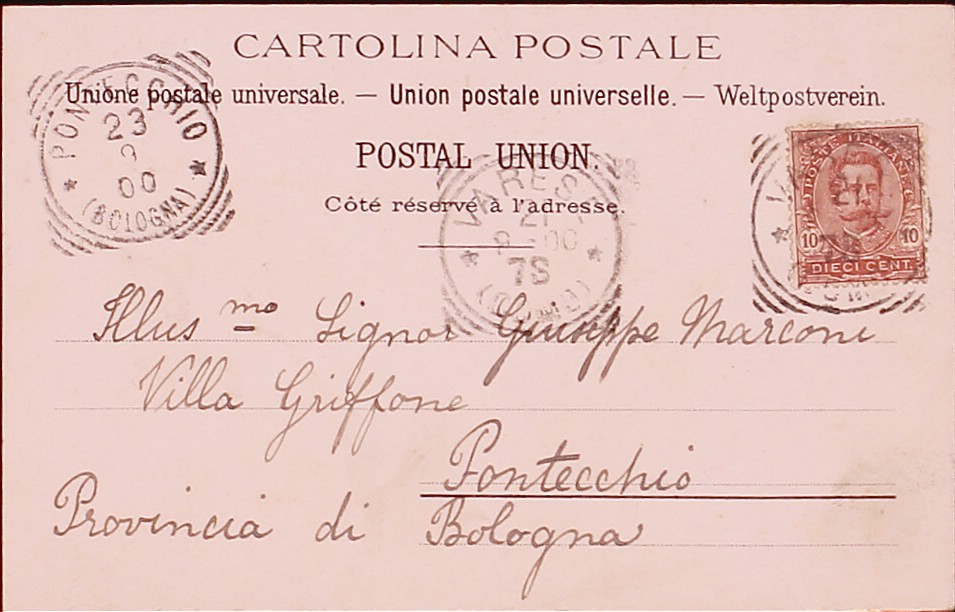 CARTOLINA POSTALE
Unione postale universale. — Union postale universelle. — Weltpostverein.
POSTAL UNION.
Côté réservé à l'adresse.
PONTECCHIO
23
9
00
(BOLOGNA)
VARESE
21
9 00
7S
(COMO)
POSTE ITALIANE
10 10
DIECI CENT.
Illus mo Signor Giuseppe Marconi
Villa Griffone
Pontecchio
Provincia di Bologna